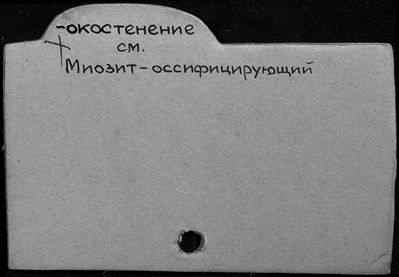 -окостенение
см.
Миозит-оссифицирующий